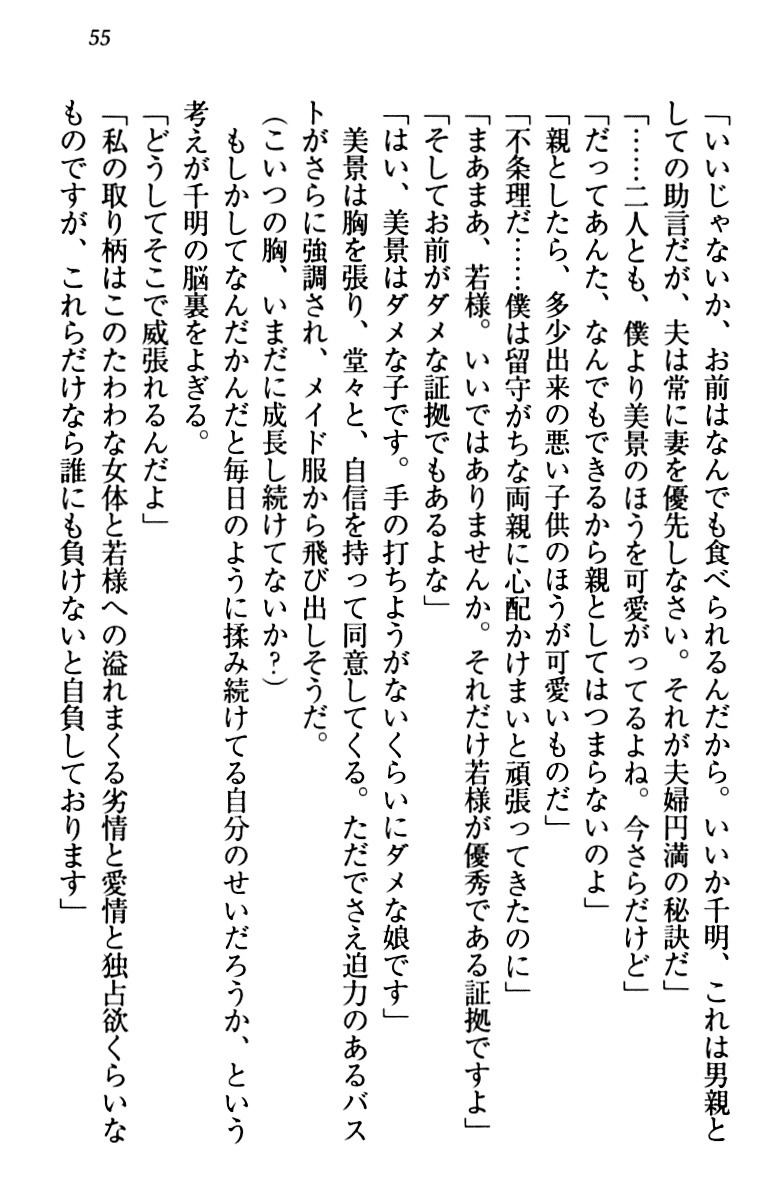 55
「いいじゃないか、お前はなんでも食べられるんだから。いいか千明、これは男親と
しての助言だが、夫は常に妻を優先しなさい。それが夫婦円満の秘訣だ」
「……二人とも、僕より美景のほうを可愛がってるよね。今さらだけど」
「だってあんた、なんでもできるから親としてはつまらないのよ」
「親としたら、多少出来の悪い子供のほうが可愛いものだ」
「不条理だ……僕は留守がちな両親に心配かけまいと頑張ってきたのに」
「まあまあ、若様。いいではありませんか。それだけ若様が優秀である証拠ですよ」
「そしてお前がダメな証拠でもあるよな」
「はい、美景はダメな子です。手の打ちようがないくらいにダメな娘です」
美景は胸を張り、堂々と、自信を持って同意してくる。ただでさえ迫力のあるバス
トがさらに強調され、メイド服から飛び出しそうだ。
(こいつの胸、いまだに成長し続けてないか?)
もしかしてなんだかんだと毎日のように揉み続けてる自分のせいだろうか、という
考えが千明の脳裏をよぎる。
「どうしてそこで威張れるんだよ」
「私の取り柄はこのたわわな女体と若様への溢れまくる劣情と愛情と独占欲くらいな
ものですが、これらだけなら誰にも負けないと自負しております」